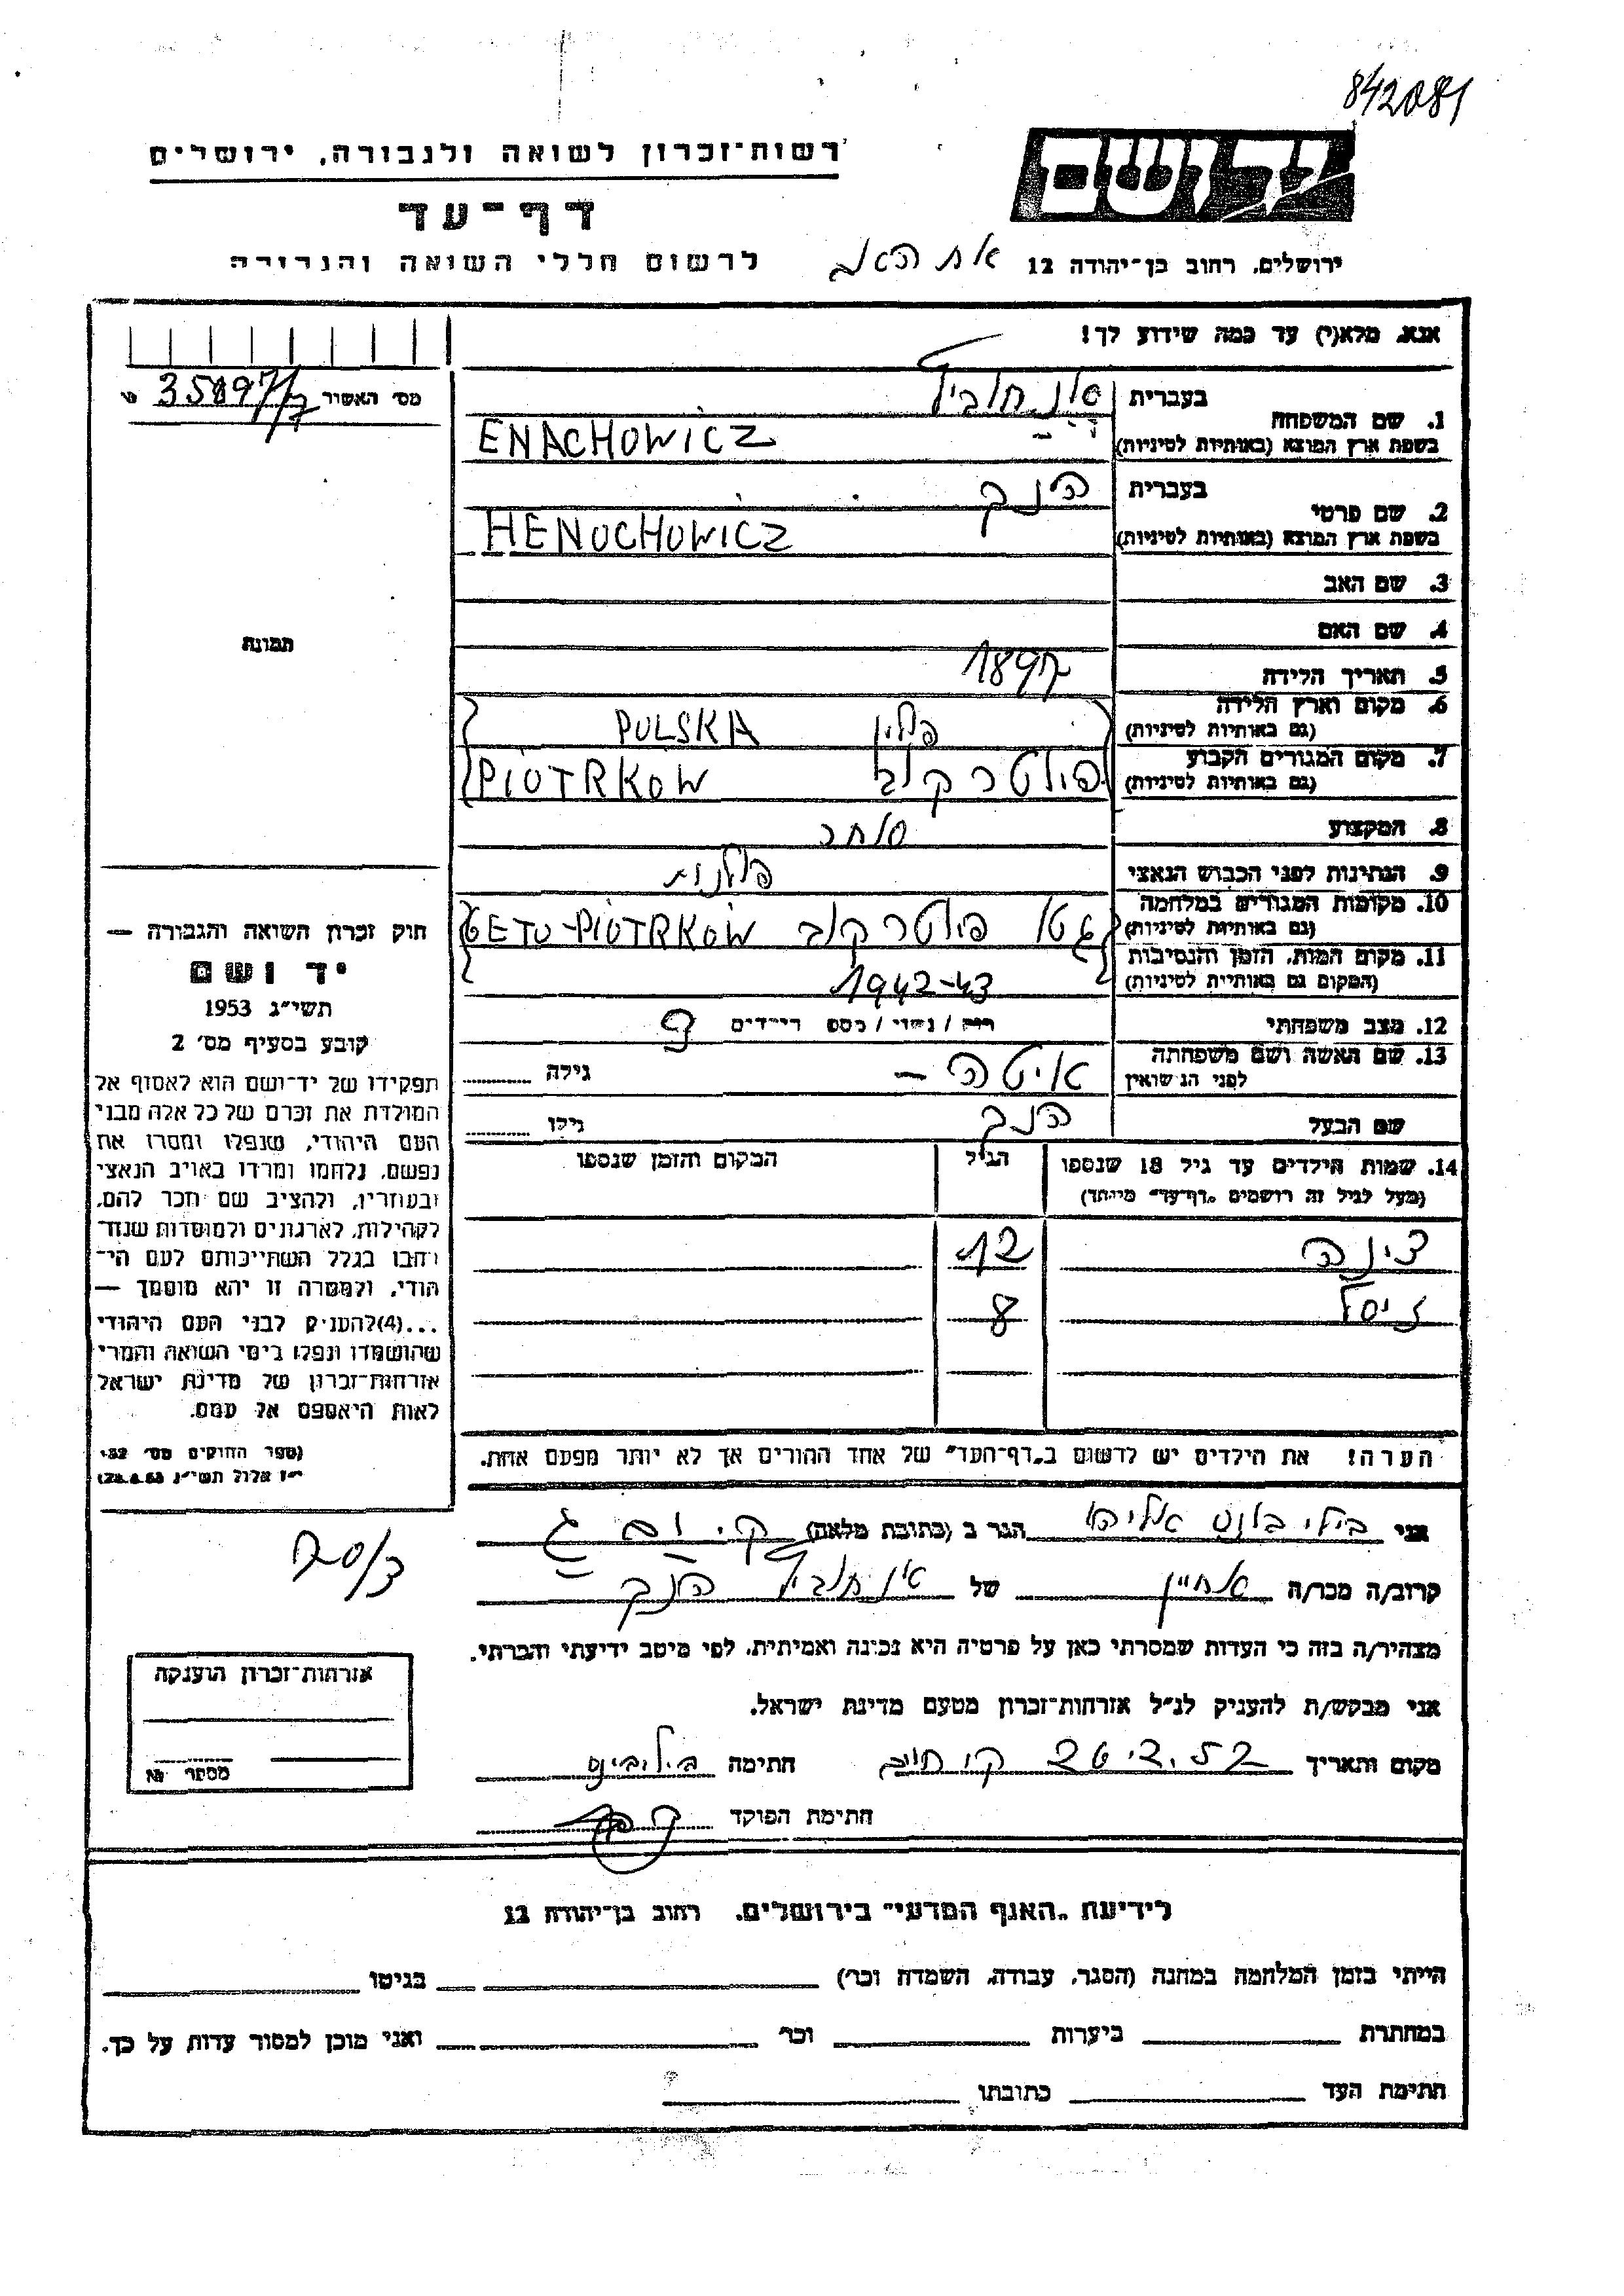 842081
רשות־זכרון לשואה ולגבורה, ירושלים
יד ושם
דף־עד
ירושלים, רחוב בן־יהודה 12
לרשום חללי השואה והגבורה
אנא, מלא(י) עד כמה שידוע לך!
מס׳ האשיר
1. שם המשפחה
בעברית
בשפת ארץ המוצא (באותיות לטיניות) ENACHOWICZ
2. שם פרטי
בעברית הנך
בשפת ארץ המוצא (באותיות לטיניות) HENOCHOWICZ
3. שם האב
4. שם האם
תמונה
5. תאריך הלידה 1897
6. מקום וארץ הלידה
(גם באותיות לטיניות) פולין POLSKA
7. מקום המגורים הקבוע
(גם באותיות לטיניות) פיוטרקוב PIOTRKOW
8. המקצוע סוחר
9. הנתינות לפני הכבוש הנאצי פולנית
10. מקומות המגורים במלחמה
(גם באותיות לטיניות) גטו פיוטרקוב GETO-PIOTRKOW
11. מקום המות, הזמן והנסיבות
(המקום גם באותיות לטיניות) 1942-43
12. מצב משפחתי רוק / נשוי / מספר הילדים
13. שם האשה ושם משפחתה
לפני הנישואין איטה – גילה
שם הבעל הנך גילו
14. שמות הילדים עד גיל 18 שנספו
(מעל לגיל זה רושמים „דף־עד״ מיוחד)
הגיל
המקום והזמן שנספו
צינה 12
זיסל 8
הערה! את הילדים יש לרשום ב„דף־העד״ של אחד ההורים אך לא יותר מפעם אחת.
חוק זכרון השואה והגבורה —
יד ושם
תשי״ג 1953
קובע בסעיף מס׳ 2
תפקידו של יד־ושם הוא לאסוף אל
המולדת את זכרם של כל אלה מבני
העם היהודי, שנפלו ומסרו את
נפשם, נלחמו ומרדו באויב הנאצי
ובעוזריו, ולהציב שם וזכר להם,
לקהילות, לארגונים ולמוסדות שנח־
רבו בגלל השתייכותם לעם הי־
הודי, ולמטרה זו יהא מוסמך —
...(4)להעניק לבני העם היהודי
שהושמדו ונפלו בימי השואה והמרי
אזרחות־זכרון של מדינת ישראל
לאות היאספם אל עמם.
(ספר החוקים מס׳ 132
י״ז אלול תשי״ג 28.8.53)
אני הגר ב (כתובת מלאה)
קרוב/ה מכר/ה אחיין של הנך
מצהיר/ה בזה כי העדות שמסרתי כאן על פרטיה היא נכונה ואמיתית, לפי מיטב ידיעתי והכרתי.
אני מבקש/ת להעניק לנ״ל אזרחות־זכרון מטעם מדינת ישראל.
מקום ותאריך חתימה
חתימת הפוקד
אזרחות־זכרון הוענקה
מספר
לידיעת „האגף המדעי״ בירושלים, רחוב בן־יהודה 12
הייתי בזמן המלחמה במחנה (הסגר, עבודה, השמדה וכר) בגיטו
במחתרת ביערות וכר ואני מוכן למסור עדות על כך.
חתימת העד כתובתו